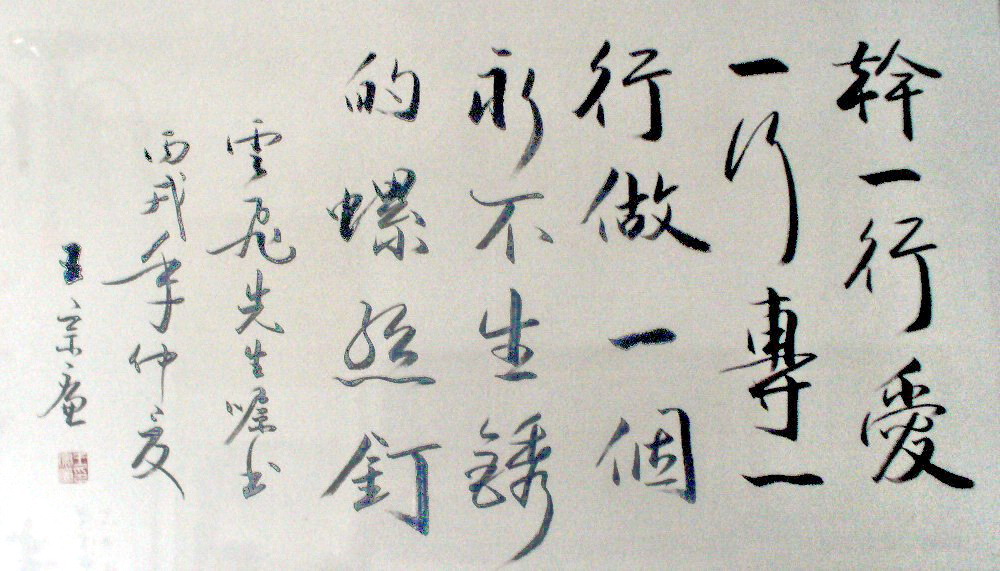 幹一行愛
一行專一
行做一個
永不生銹
的螺丝釘
雲飛先生嘱书
丙戌年仲夏
王